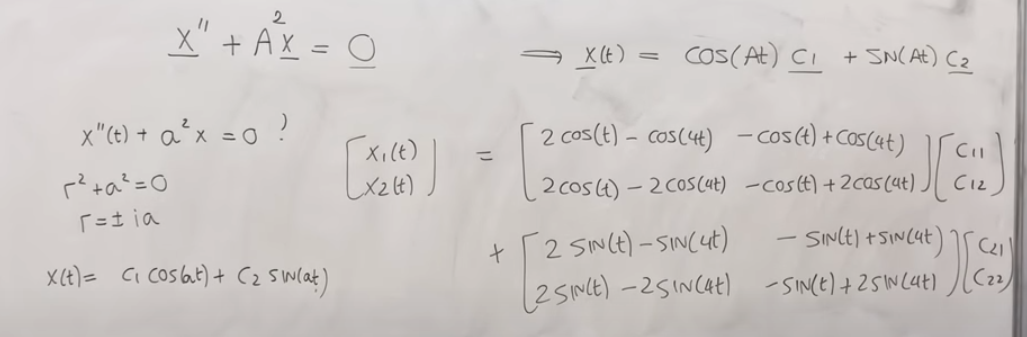 x'' + A²x = 0 ⟹ x(t) = COS(At) C1 + SIN(At) C2
x''(t) + a²x = 0 ?
r² + a² = 0
r = ± ia
x(t) = C1 COS(at) + C2 SIN(at)
[x1(t) x2(t)] = [2 cos(t) - cos(4t) -cos(t) + cos(4t)] [C11
2cos(t) - 2cos(4t) -cos(t) + 2cos(4t)] C12]
+ [2 SIN(t) - SIN(4t) - SIN(t) + SIN(4t)] [C21
2SIN(t) - 2SIN(4t) -SIN(t) + 2SIN(4t)] C22]